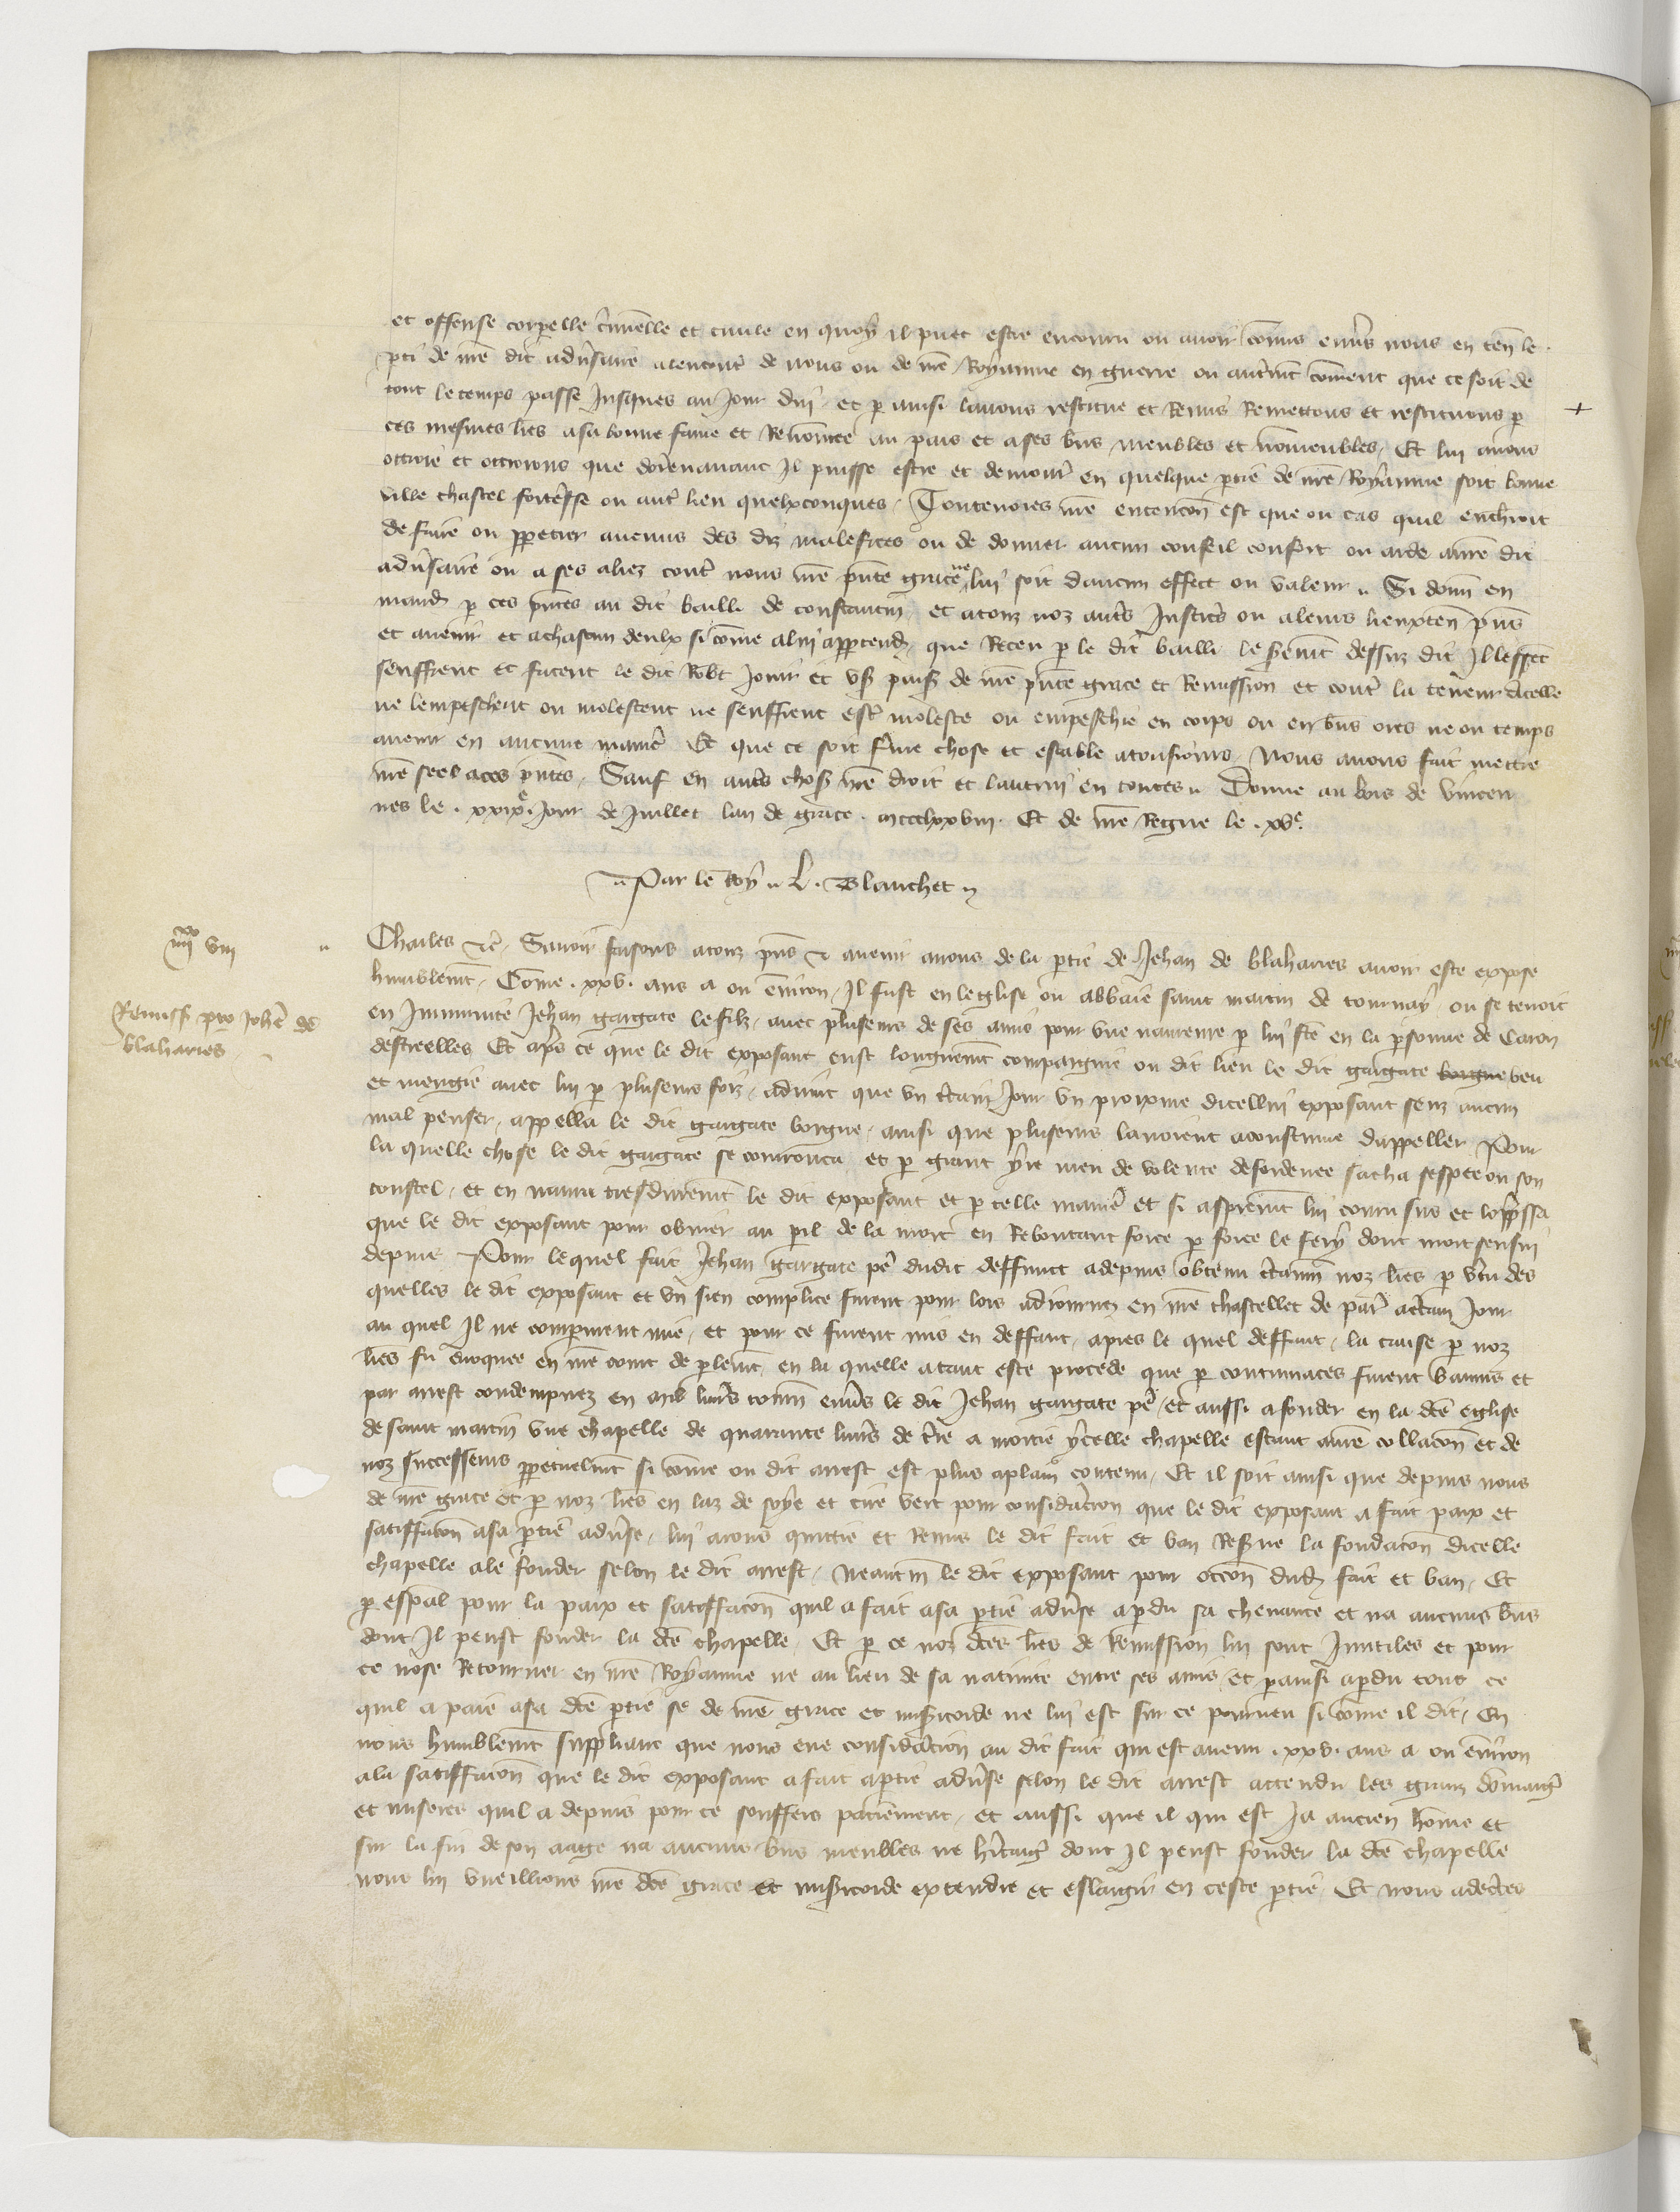 et offense corporelle criminelle et civile en quoy il puet estre encouru ou avoir commis envers nous en ten le
parti de nre dit adversaire alencontre de nous ou de nre Royaume en guerre ou autrement coment que ce soit de
tout le temps passe Jusques au Jour dui et par ainsi lavons restitue et Remis Remettons et restituons par
ces mesmes lres a sa bonne fame et Renommee au pais et a ses biens meubles et nonmeubles Et lui avons
ottroie et ottroions que dorenavant Il puisse estre et demourer en quelque partie de nre Royaume soit bonne
ville chastel forteresse ou autre lieu quelxconques Toutevoies nre entencion est que ou cas quil encherroit
de faire ou perpetrer aucuns des diz malefices ou de donner aucun conseil confort ou aide a nre dit
adversaire ou a ses aliez contre nous nre presente grace ne lui soit daucun effect ou valeur Si donn en
mand par ces presentes au dit bailli de constantin et a touz noz autres Justiciers ou a leurs lieuxten presens
et avenir et a chascun deulx si come a lui appartend que Receu par le dit bailli le serement dessuz dit Il lessent
seuffrent et facent le dit Robt Jouir et user paisi de nre presente grace et Remission et contre la teneur dicelle
ne lempeschent ou molestent ne seuffrent estre moleste ou empeschie en corps ou en biens ores ne ou temps
avenir en aucune maniere Et que ce soit ferme chose et estable a tousjours Nous avons fait mettre
nre seel a ces presentes Sauf en autres choses nre droit et lautrui en toutes Donne au bois de vincen
nes le xxixe Jour de Juillet lan de grace mccclxxviii Et de nre Regne le xve
Par le Roy L. Blanchet
iiiixx viii
Charles etc Savoir faisons a touz presens et avenir a nous de la partie de Jehan de blaharies avoir este expose
humblement Come xxv ans a ou environ Il fust en leglise ou abbaie saint martin de tournay ou se tenoit
Remissio pro Johe de
blaharies
en Immunite Jehan gargate le filz avec pluseurs de ses amis pour une navreure par lui fte en la personne de Caron
destreelles Et apres ce que le dit exposant eust longuement compaignie ou dit lieu le dit gargate borgne beu
et mengie avec lui par pluseurs foiz advint que un certain Jour un proixme dicellui exposant senz aucun
mal penser appella le dit gargate borgne ainsi que pluseurs lavoient acoustume dappeller Pour
la quelle chose le dit gargate se courrouca et par grant yre meu de volente desordenee sacha sespee ou son
coustel et en navra tresdurement le dit exposant et par telle maniere et si asprement lui couru sus et loppressa
que le dit exposant pour obvier au peril de la mort en Reboutant force par force le fery dont mort sensui
depuis Pour lequel fait Jehan gargate pere dudit deffunct a depuis obtenu certaines noz lres par vertu des
quelles le dit exposant et un sien complice furent pour lors adjournez en nre chastellet de paris a certain Jour
au quel Il ne comparurent mie et pour ce furent mis en deffaut apres le quel deffaut la cause par noz
lres fu evoquee en nre court de parlement en la quelle a tant este procede que par contumaces furent bannis et
par arrest condempnez en livres tourn envers le dit Jehan gargate pere et aussi a fonder en la dce eglise
de saint martin une chapelle de quarante livres de terre a mortie ycelle chapelle estant a nre collacion et de
noz successeurs perpetuelment si come ou dit arrest est plus aplain contenu Et il soit ainsi que depuis nous
de nre grace et par noz lres en laz de soye et cire vert pour consideracion que le dit exposant a fait paix et
satiffacion a sa partie adverse lui avons quittie et Remis le dit fait et ban Reserve la fondacion dicelle
chapelle a le fonder selon le dit arrest Neantm le dit exposant pour occon dud fait et ban Et
par espal pour la paix et satiffacion quil a fait a sa partie adverse a perdu sa chevance et na aucuns biens
dont Il peust fonder la dce chapelle Et par ce noz dces lres de Remission lui sont Inutiles et pour
ce nose Retourner en nre Royaume ne au lieu de sa nativite entre ses amis et par ainsi a perdu tout ce
quil a paie a sa dce partie se de nre grace et misericorde ne lui est sur ce pourveu si come il dit En
nous humblement suppliant que nous eue consideracion au dit fait qui est avenu xxv ans a ou environ
a la satiffacion que le dit exposant a fait a partie adverse selon le dit arrest attendu les grans dommaiges
et miseres quil a depuis pour ce souffers paciemment et aussi que il qui est Ja ancien home et
sur la fin de son aage na aucuns biens meubles ne heritaiges dont Il peust fonder la dce chapelle
nous lui vueillions nre dce grace et misericorde extendre et eslargir en ceste partie Et nous adecertes